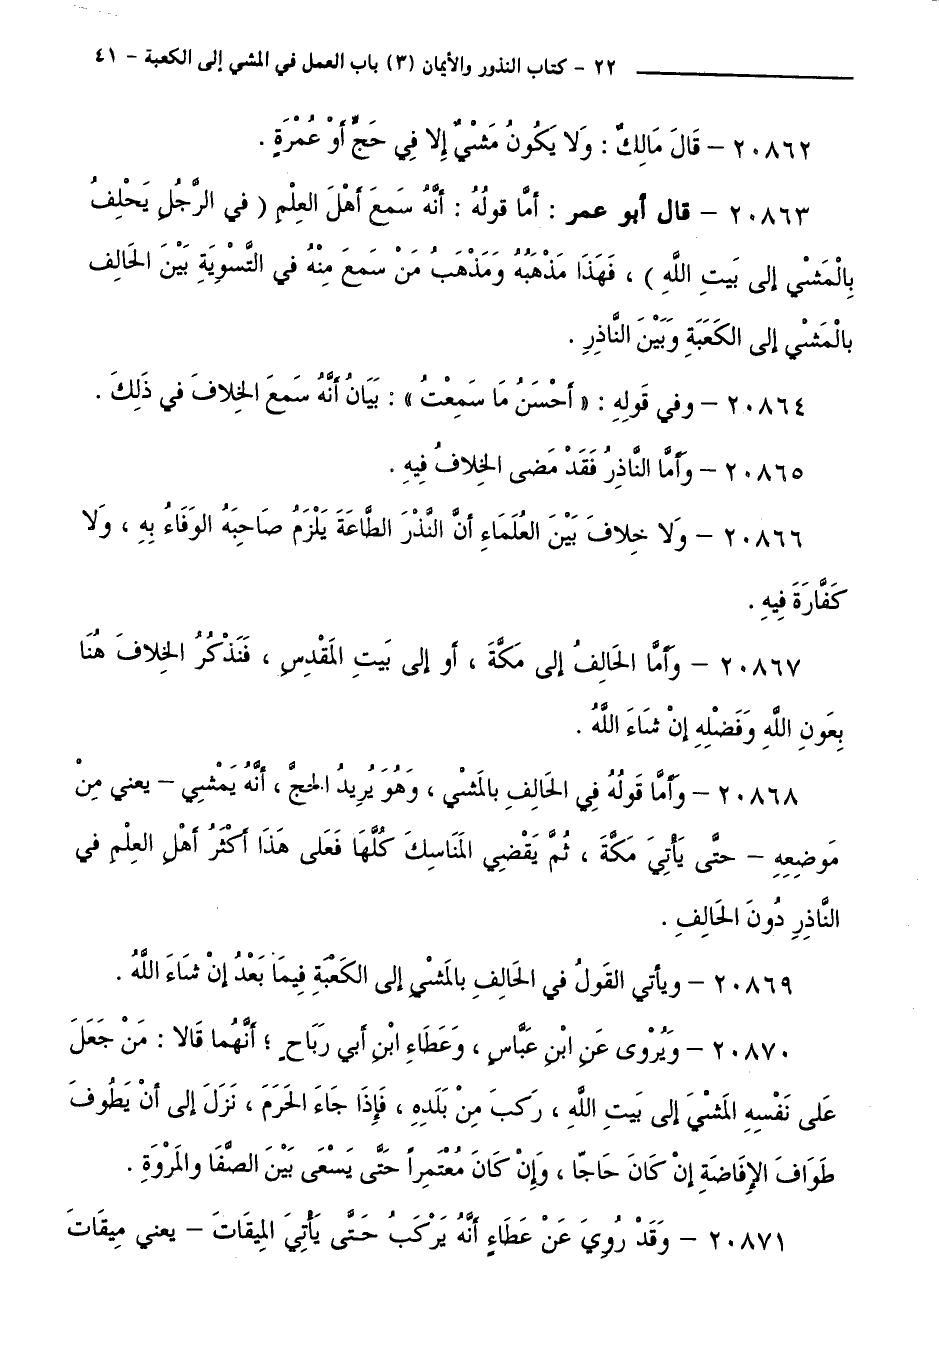 ٢٢ - كتاب النذور والأيمان (٣) باب العمل في المشي إلى الكعبة - ٤١
٢٠٨٦٢ - قَالَ مَالِكٌ : وَلا يَكُونُ مَشْيٌ إِلا فِي حَجٍّ أَوْ عُمْرَةٍ .
٢٠٨٦٣ - قال أبو عمر : أمَّا قولُهُ : أنَّهُ سَمعَ أَهْلَ العِلْمِ ( في الرَّجُلِ يَحْلِفُ
بِالْمَشْيِ إلى بَيتِ اللَّهِ ) ، فَهَذَا مَذْهَبُهُ وَمَذْهَبُ مَنْ سَمعَ مِنْهُ في التَّسْوِيَةِ بَيْنَ الحَالِف
بالْمَشْيِ إلى الكَعَبَةِ وَبَيْنَ النَّاذِرِ .
٢٠٨٦٤ - وفي قَولِهِ : « أَحْسَنُ مَا سَمِعْتُ » : بَيَانُ أنَّهُ سَمعَ الخِلافَ في ذَلِكَ .
٢٠٨٦٥ - وَأَمَّا النَّاذِرُ فَقَدْ مَضى الخِلافُ فِيهِ .
٢٠٨٦٦ - وَلا خِلافَ بَيْنَ العُلَمَاءِ أنَّ النَّذْرَ الطَّاعَةَ يَلْزَمُ صَاحِبَهُ الوَفَاءُ بِهِ ، وَلا
كَفَّارَةَ فِيهِ .
٢٠٨٦٧ - وَأَمَّا الحَالِفُ إلى مَكَّةَ ، أو إلى بَيتِ المَقْدِسِ ، فَنَذْكُرُ الخِلافَ هُنَا
بِعَونِ اللَّهِ وَفَضْلِهِ إنْ شَاءَ اللَّهُ .
٢٠٨٦٨ - وَأَمَّا قَولُهُ فِي الحَالِفِ بالمَشْيِ ، وَهُوَ يُرِيدُ الحجَّ ، أَنَّهُ يَمْشِي - يعني مِنْ
مَوضِعِهِ - حتَّى يَأْتِيَ مَكَّةَ ، ثُمَّ يَقْضِي المَنَاسِكَ كُلَّهَا فَعَلى هَذَا أَكْثَرُ أَهْلِ العِلْمِ في
النَّاذِرِ دُونَ الحَالِفِ .
٢٠٨٦٩ - ويأتي القَولُ في الحَالِفِ بالمَشْيِ إلى الكَعْبَةِ فِيمَا بَعْدُ إنْ شَاءَ اللَّهُ .
٢٠٨٧٠ - وَيُرْوى عَنِ ابْنِ عَبَّاسٍ ، وَعَطَاءِ ابْنِ أبي رَبَاحٍ ؛ أَنَّهُما قَالا : مَنْ جَعَلَ
عَلى نَفْسِهِ المَشْيَ إلى بَيتِ اللَّهِ ، رَكبَ مِنْ بَلَدِهِ ، فَإِذَا جَاءَ الحَرَمَ ، نَزَلَ إلى أنْ يَطُوفَ
طَوَافَ الإِفَاضَةِ إنْ كَانَ حَاجّا ، وَإنْ كَانَ مُعْتَمِراً حَتَّى يَسْعَى بَيْنَ الصَّفَا والمَرْوَةِ .
٢٠٨٧١ - وَقَدْ رُوِيَ عَنْ عَطَاءٍ أنَّهُ يَرْكَبُ حَتَّى يَأْتِيَ المِيقَاتَ - يعني مِيقَاتَ